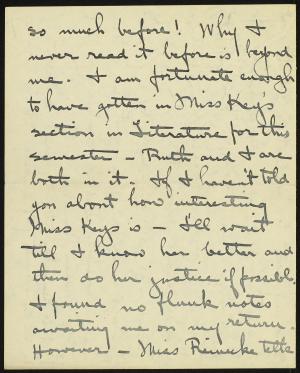 so much before! Why I
never read it before is beyond
me. I am fortunate enough
to have gotten in Miss Key's
section in Literature for this
semester - Ruth and I are
both in it. If I haven't told
you about how interesting
Miss Keys is - I'll wait
till I know her better and
then do her justice if possible.
I found no flunk notes
awaiting me on my return.
However - Miss Reinecke tells